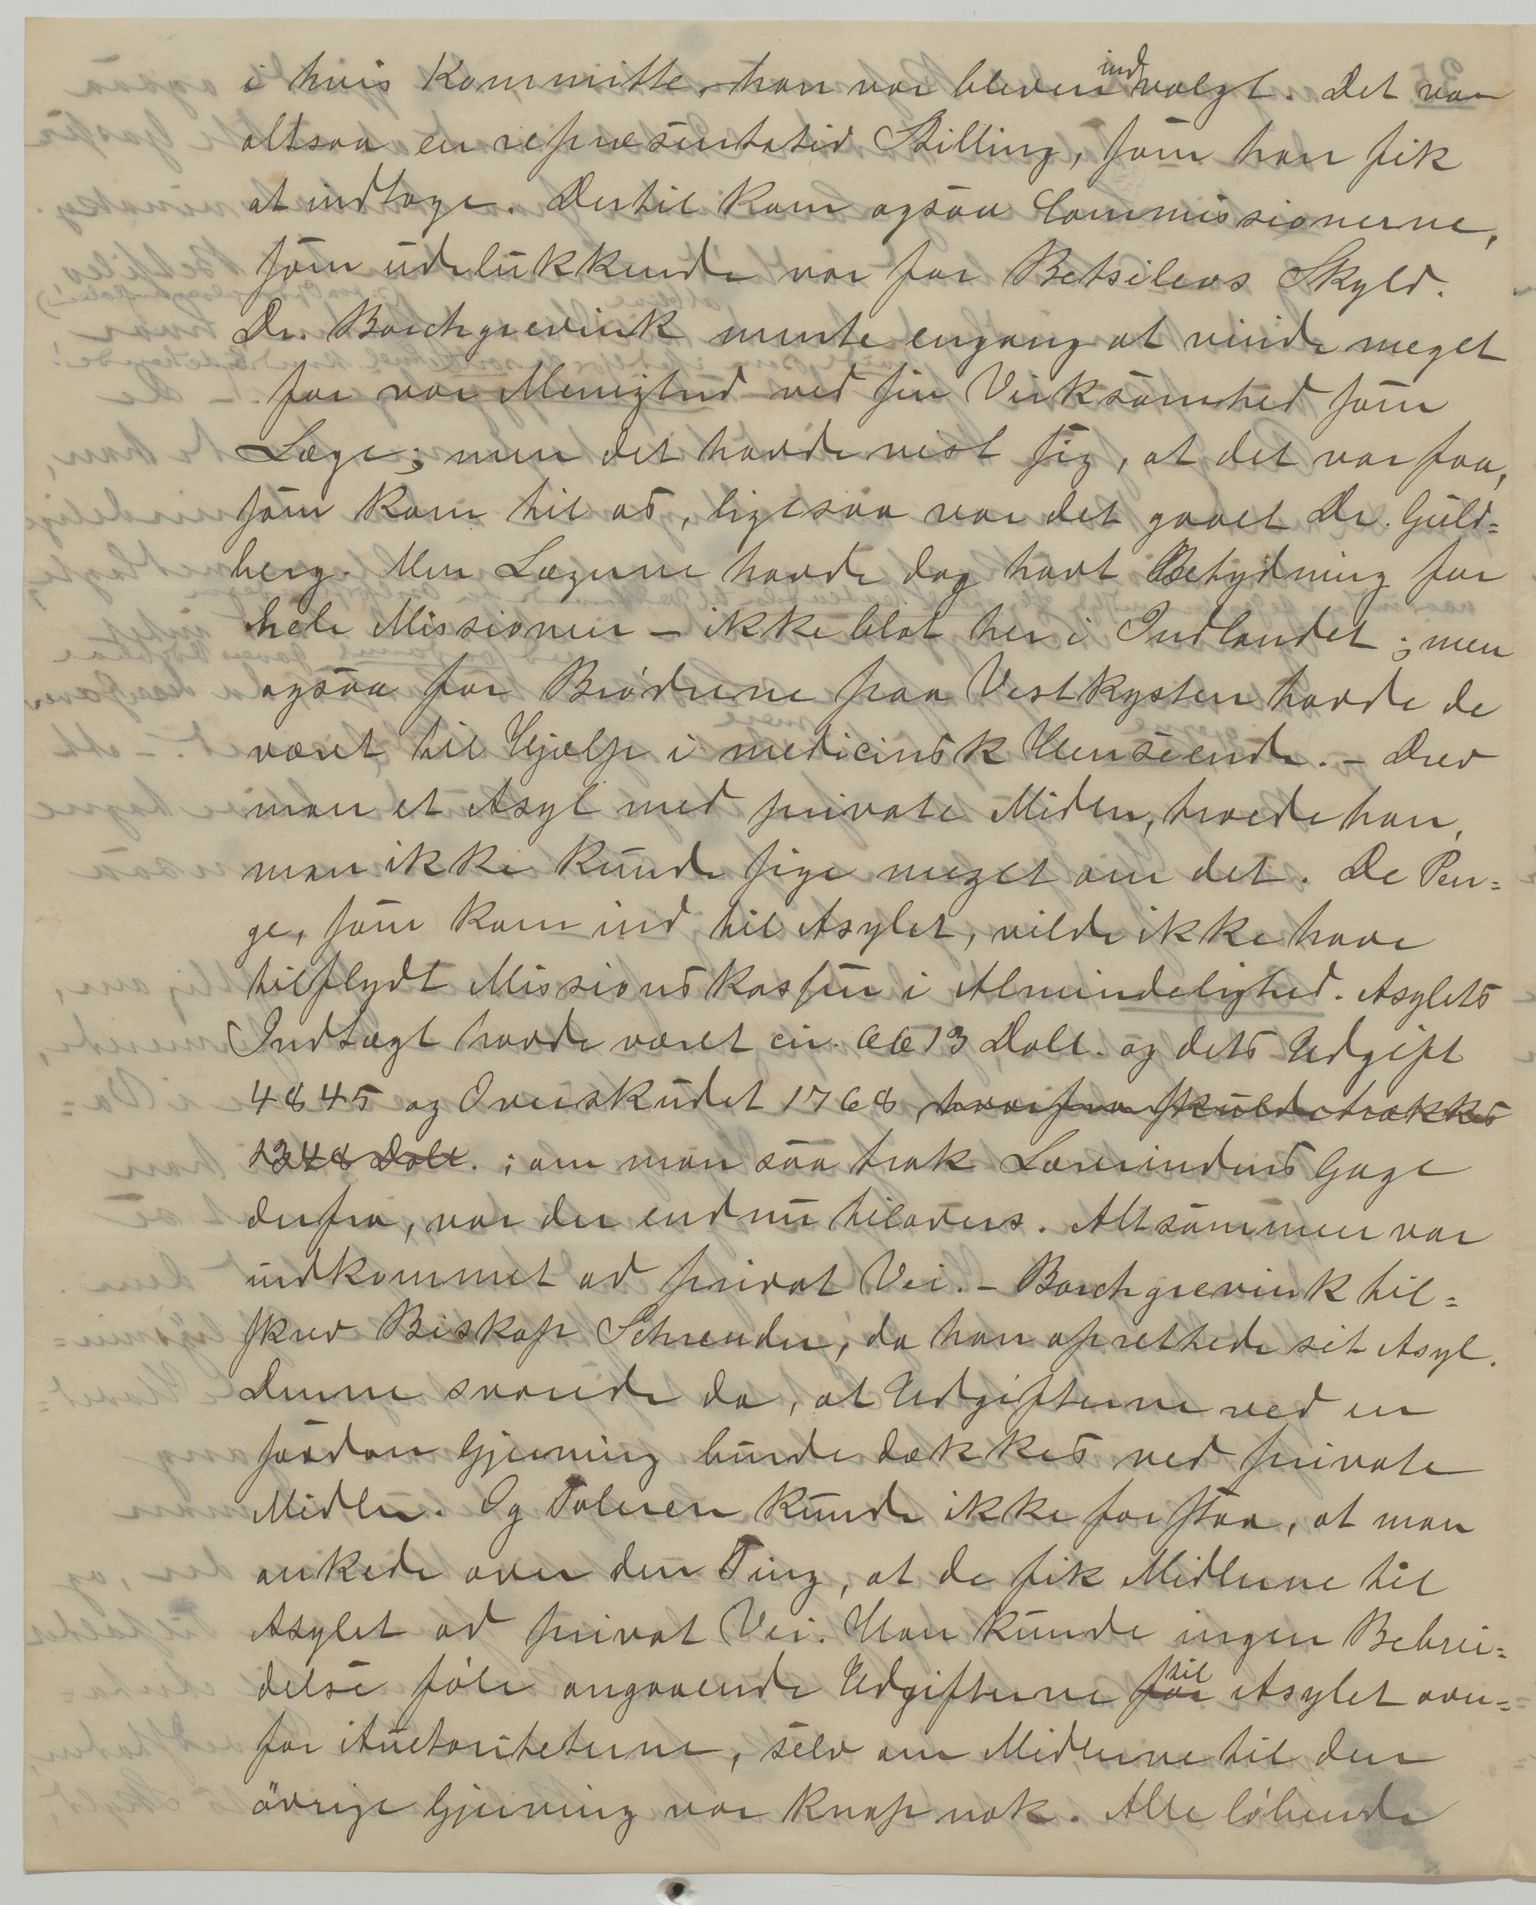 i hvis Kommitte, han var bleven indvalgt. Det var
altsaa en repræsentativ Stilling, som han fik
at indtage. Dertil kom ogsaa Commissionerne,
som udelukkende var for Betsileos Skyld.
Dr. Borchgrevink mente engang at vinde meget
for vor Menighed ved sin Virksomhed som
Læge; men det havde vist sig, at det var faa,
som kom til os, ligesaa var det gaaet Dr. Guld=
berg. Men Lægerne havde dog havt Betydning for
hele Missionen – ikke blot her i Indlandet; men
ogsaa for Brødrene paa Vestkysten havde de
været til Hjælp i medicinsk Henseende. – Drev
man et Asyl med private Midler, troede han,
man ikke kunde sige meget om det. De Pen=
ge, som kom ind til Asylet, vilde ikke have
tilflydt Missionskassen i Almindelighed. Asylets
Indtægt havde været cir. 6613 Doll. og dets Udgift
4845 og Overskudet 1768 hvorfra skulde trækkes
1348 Doll. ; om man saa trak Lærerindens Gage
derfra, var der endnu tilovers. Altsammen var
indkommet ad privat Vei. – Borchgrevink til=
skrev Biskop Schreuder, da han oprettede sit Asyl.
Denne svarede da, at Udgifterne ved en
saadan Gjerning burde dækkes ved private
Midler. Og Taleren kunde ikke forstaa, at man
ankede over den Ting, at de fik Midlerne til
Asylet ad privat Vei. Man kunde ingen Bebrei=
delse føle angaaende Udgifterne for til Asylet oven=
for Auctoriteterne, selv om Midlerne til den
øvrige Gjerning var knap nok. Alle løbende